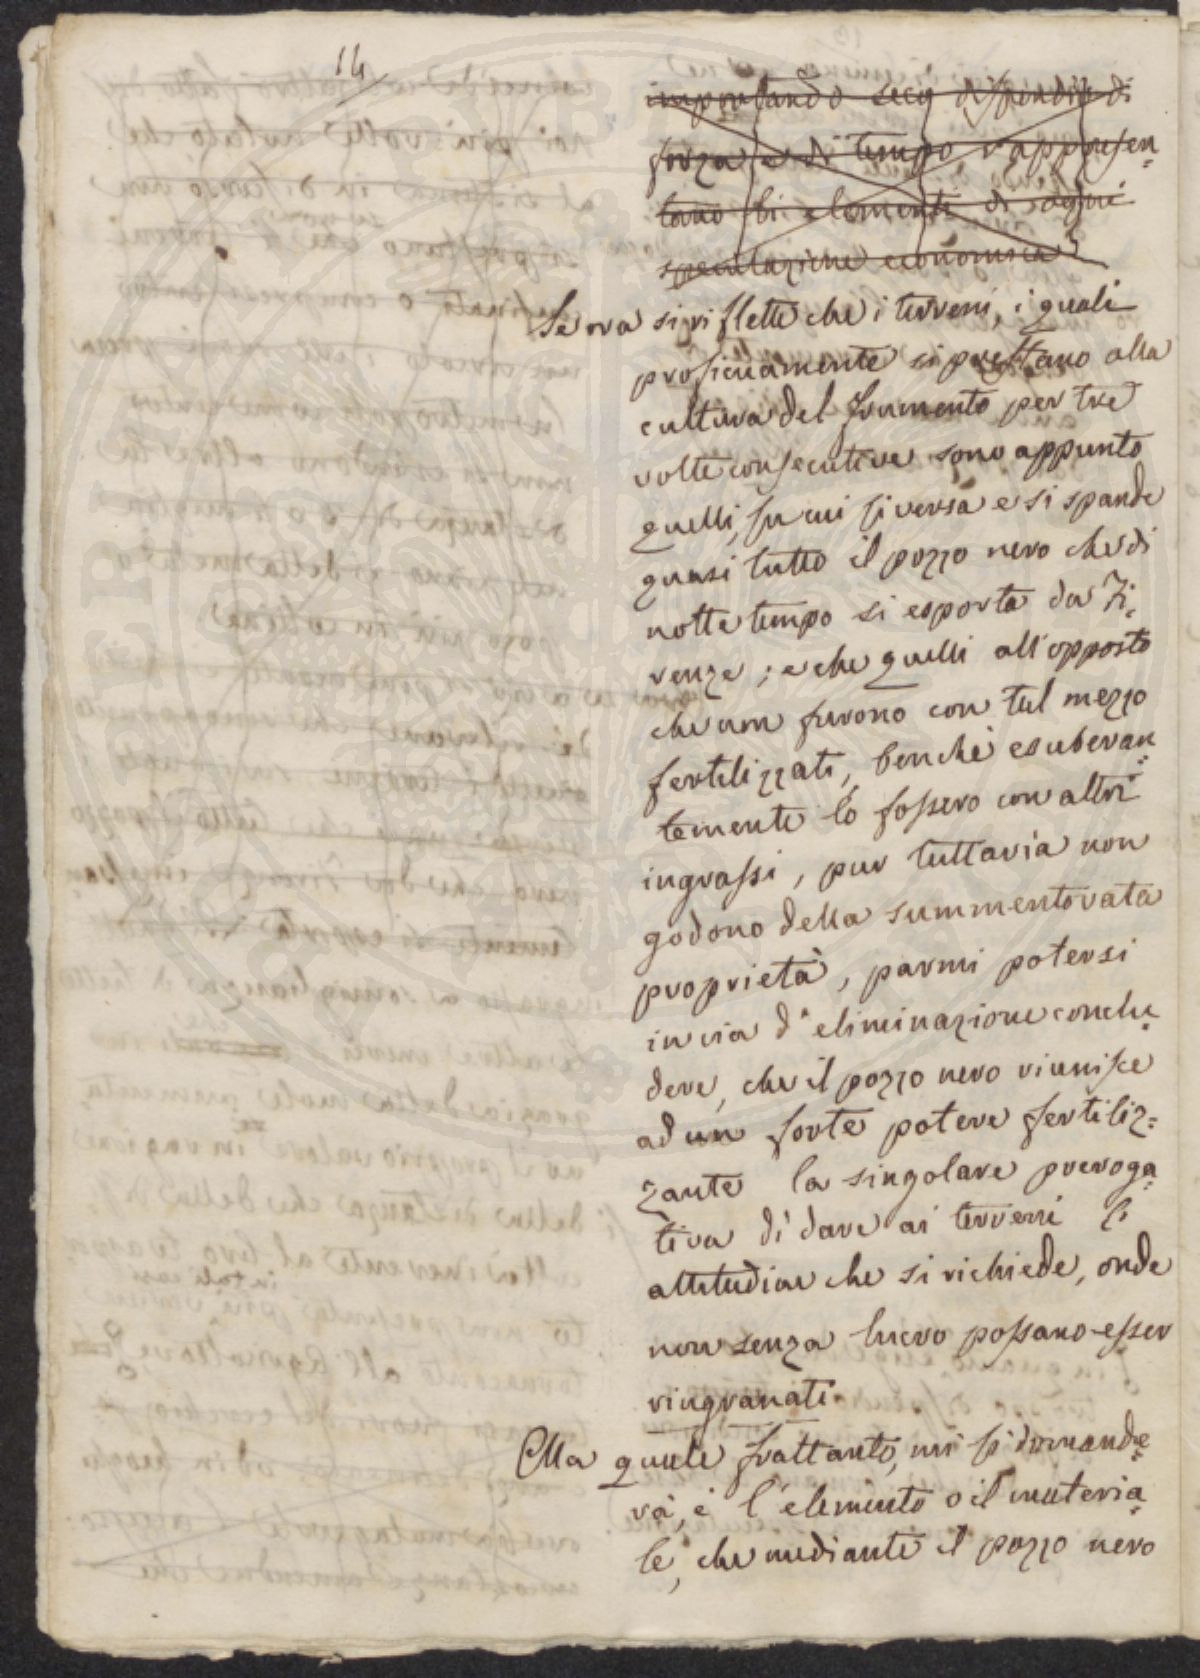 14
importando seco dispendio di
forza e di tempo rappresen=
tano li elementi di ogni
speculazione economica
Se ora si riflette che i terreni, i quali
proficuamente si prestano alla
cultura del frumento per tre
volte consecutive sono appunto
quelli, su cui si versa e si spande
quasi tutto il pozzo nero che di
notte tempo si esporta da Fi=
renze; e che quelli all'opposto
che non furono con tal mezzo
fertilizzati, benchè esuberan=
temente lo fossero con altri
ingrassi, pur tuttavia non
godono della summentovata
proprietà, parmi potersi
in via d'eliminazione conclu=
dere, che il pozzo nero riunisce
ad un forte potere fertiliz=
zante la singolare preroga=
tiva di dare ai terreni l'
attitudine che si richiede, onde
non senza lucro possano esser
ringranati.
Ma quale frattanto, mi si domande=
rà, è l'elemento o il materia=
le, che mediante il pozzo nero